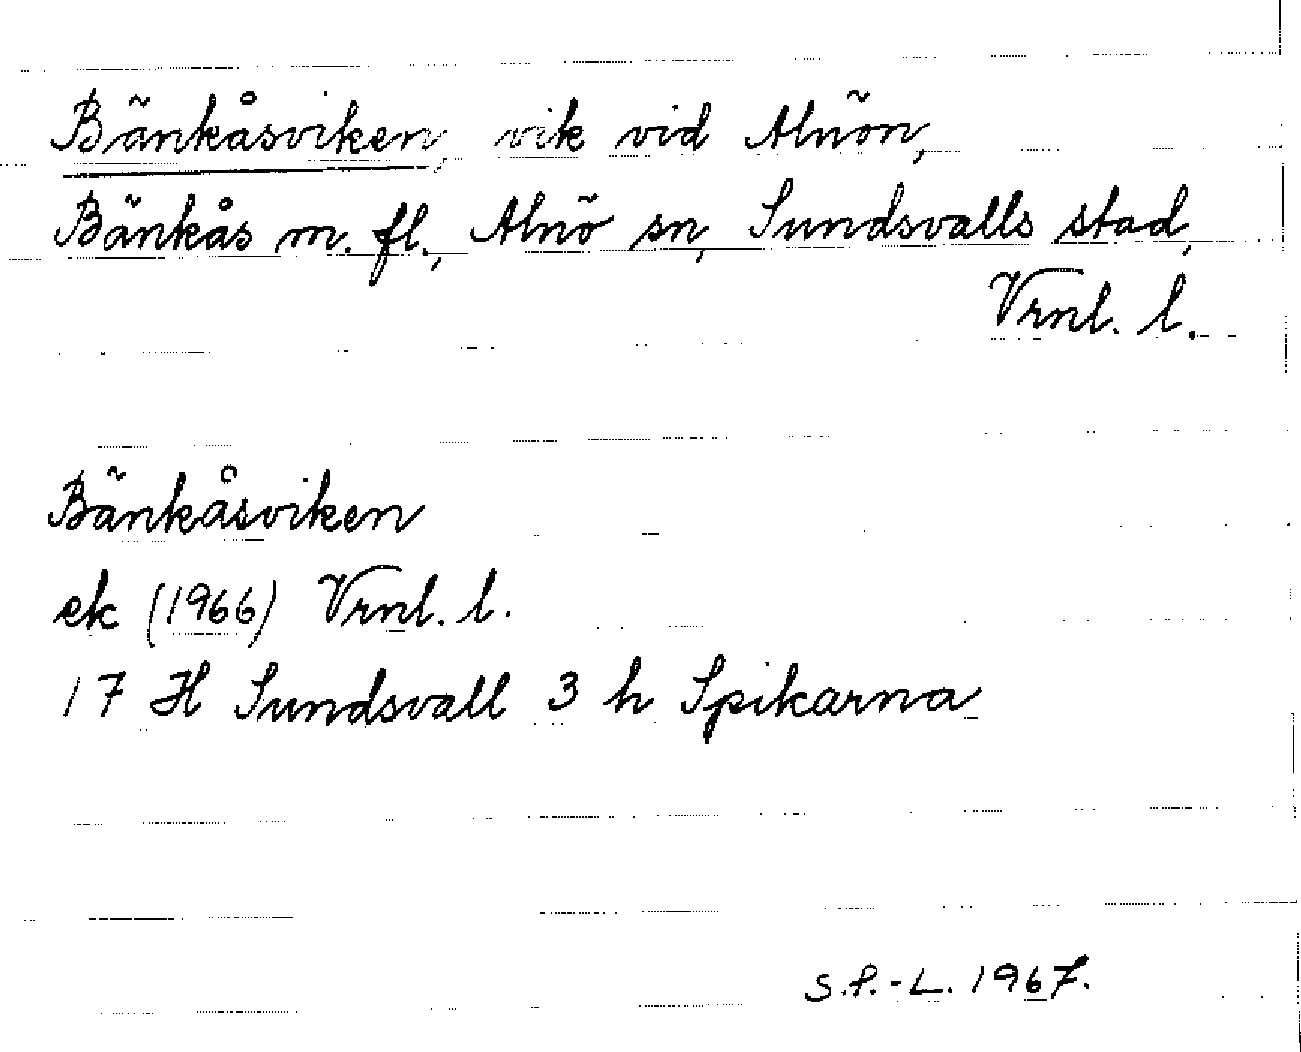 Bänkåsviken, vik vid Alnön,
Bänkås m. fl., Alnö sn, Sundsvalls stad,
Vrnl. l.
Bänkåsviken
ek (1966) Vrnl. l.
17 H Sundsvall 3 h Spikarna
S.P.-L. 1967.